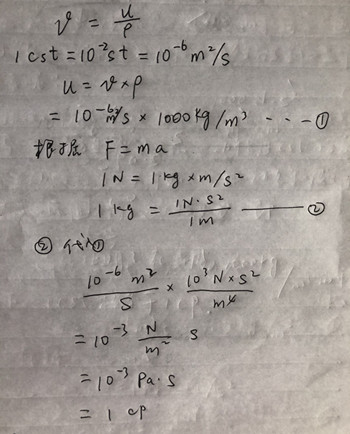 ν = u/ρ
1 cst = 10⁻²st = 10⁻⁶ m²/s
u = ν × ρ
= 10⁻⁶ m²/s × 1000 kg/m³ - - - ①
根据 F = ma
1N = 1 kg × m/s²
1 kg = 1N·s²/1m —— ②
② 代入①
10⁻⁶ m²/s × 10³ N×s²/m⁴
= 10⁻³ N/m² s
= 10⁻³ Pa·s
= 1 cp